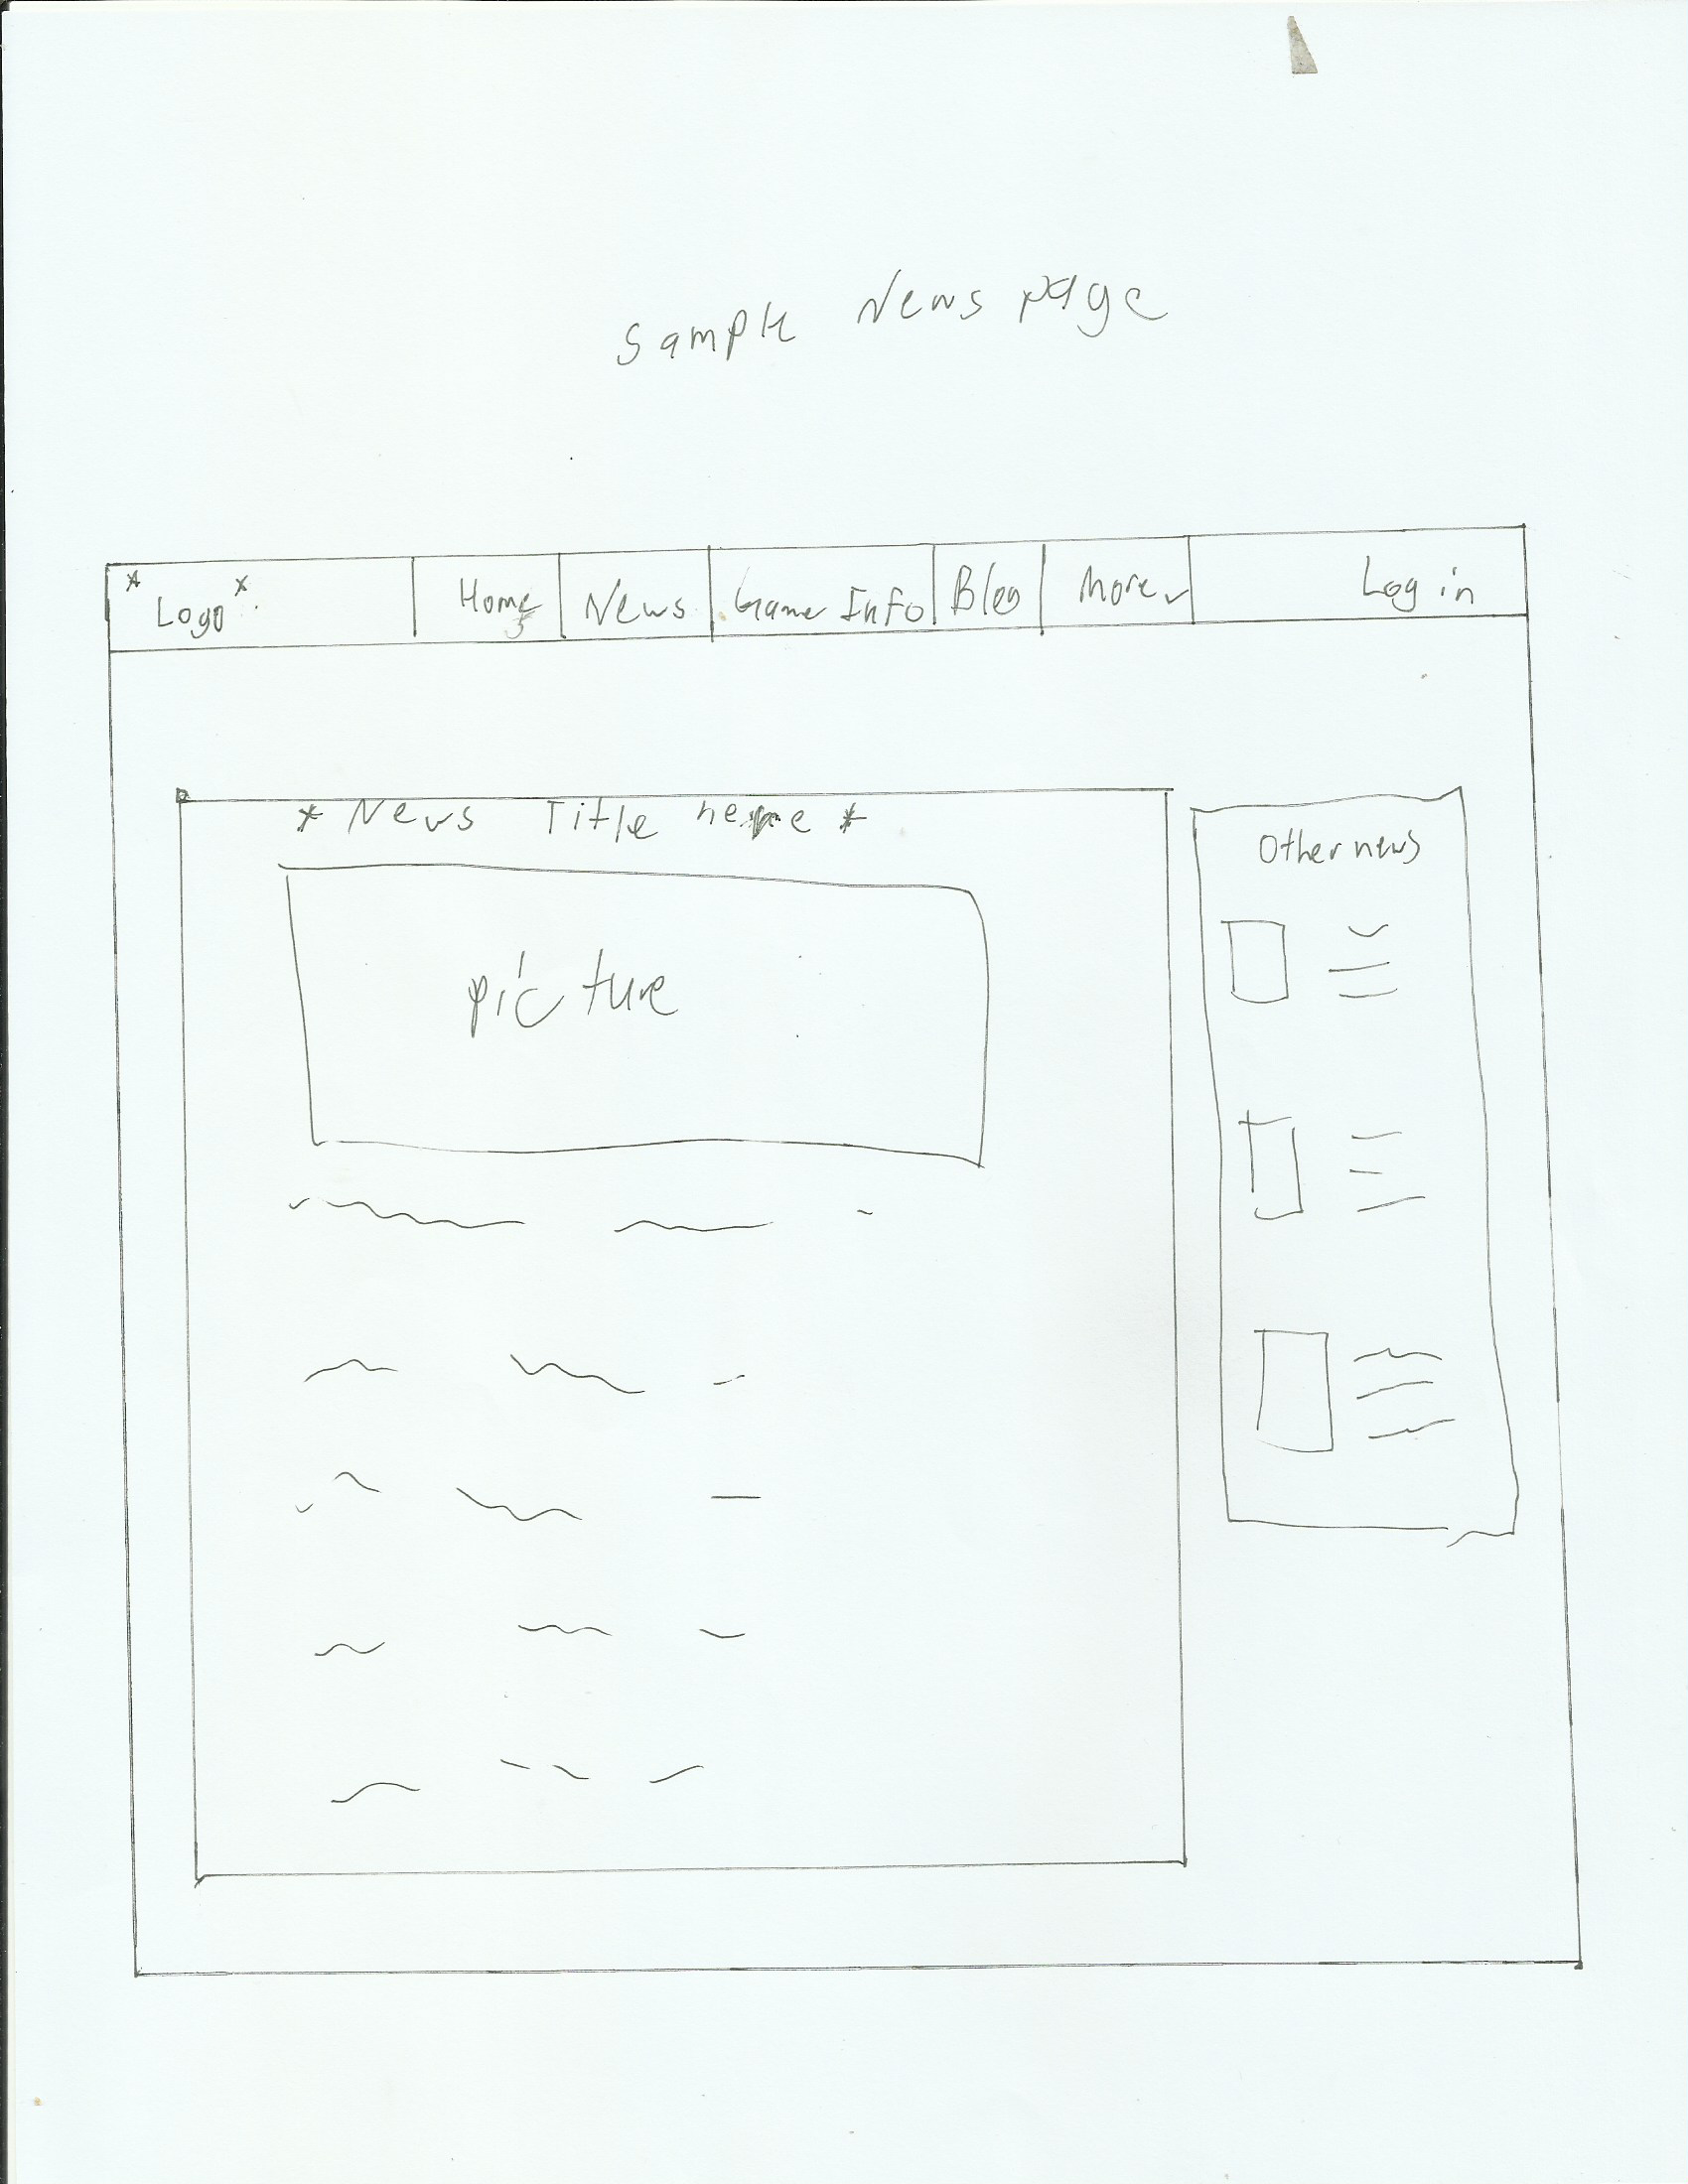 Sample News page
* Logo *
Home
News
Game Info
Blog
More
Log in
* News Title here *
Other news
picture